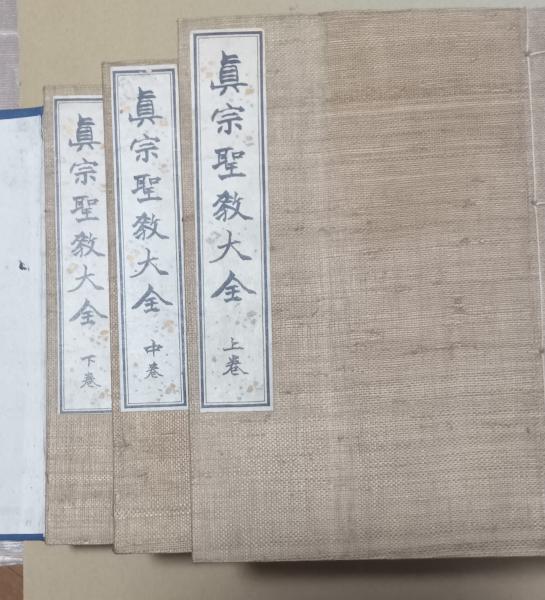 眞宗聖敎大全
上卷
眞宗聖敎大全
中卷
眞宗聖敎大全
下卷